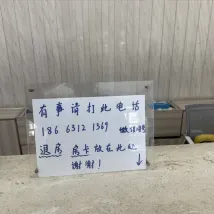 有事请打此电话
186 6312 1369 微信同号
退房 房卡放在此处
谢谢！ ↓